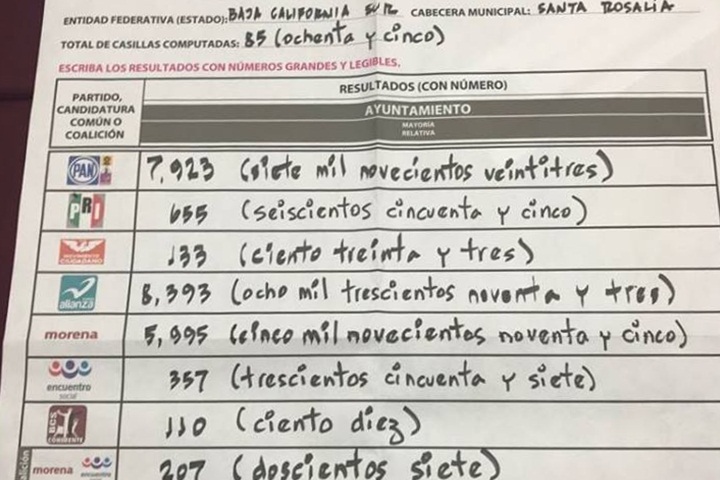 ENTIDAD FEDERATIVA (ESTADO): BAJA CALIFORNIA SUR CABECERA MUNICIPAL: SANTA ROSALÍA
TOTAL DE CASILLAS COMPUTADAS: 85 (ochenta y cinco)
ESCRIBA LOS RESULTADOS CON NÚMEROS GRANDES Y LEGIBLES.
PARTIDO, CANDIDATURA COMÚN O COALICIÓN
RESULTADOS (CON NÚMERO)
AYUNTAMIENTO
MAYORÍA
RELATIVA
PAN 7,923 (siete mil novecientos veintitres)
PRI 655 (seiscientos cincuenta y cinco)
MOVIMIENTO CIUDADANO 133 (ciento treinta y tres)
alianza 8,393 (ocho mil trescientos noventa y tres)
morena 5,995 (cinco mil novecientos noventa y cinco)
encuentro social 357 (trescientos cincuenta y siete)
BCS COHERENTE 110 (ciento diez)
morena encuentro 207 (doscientos siete)